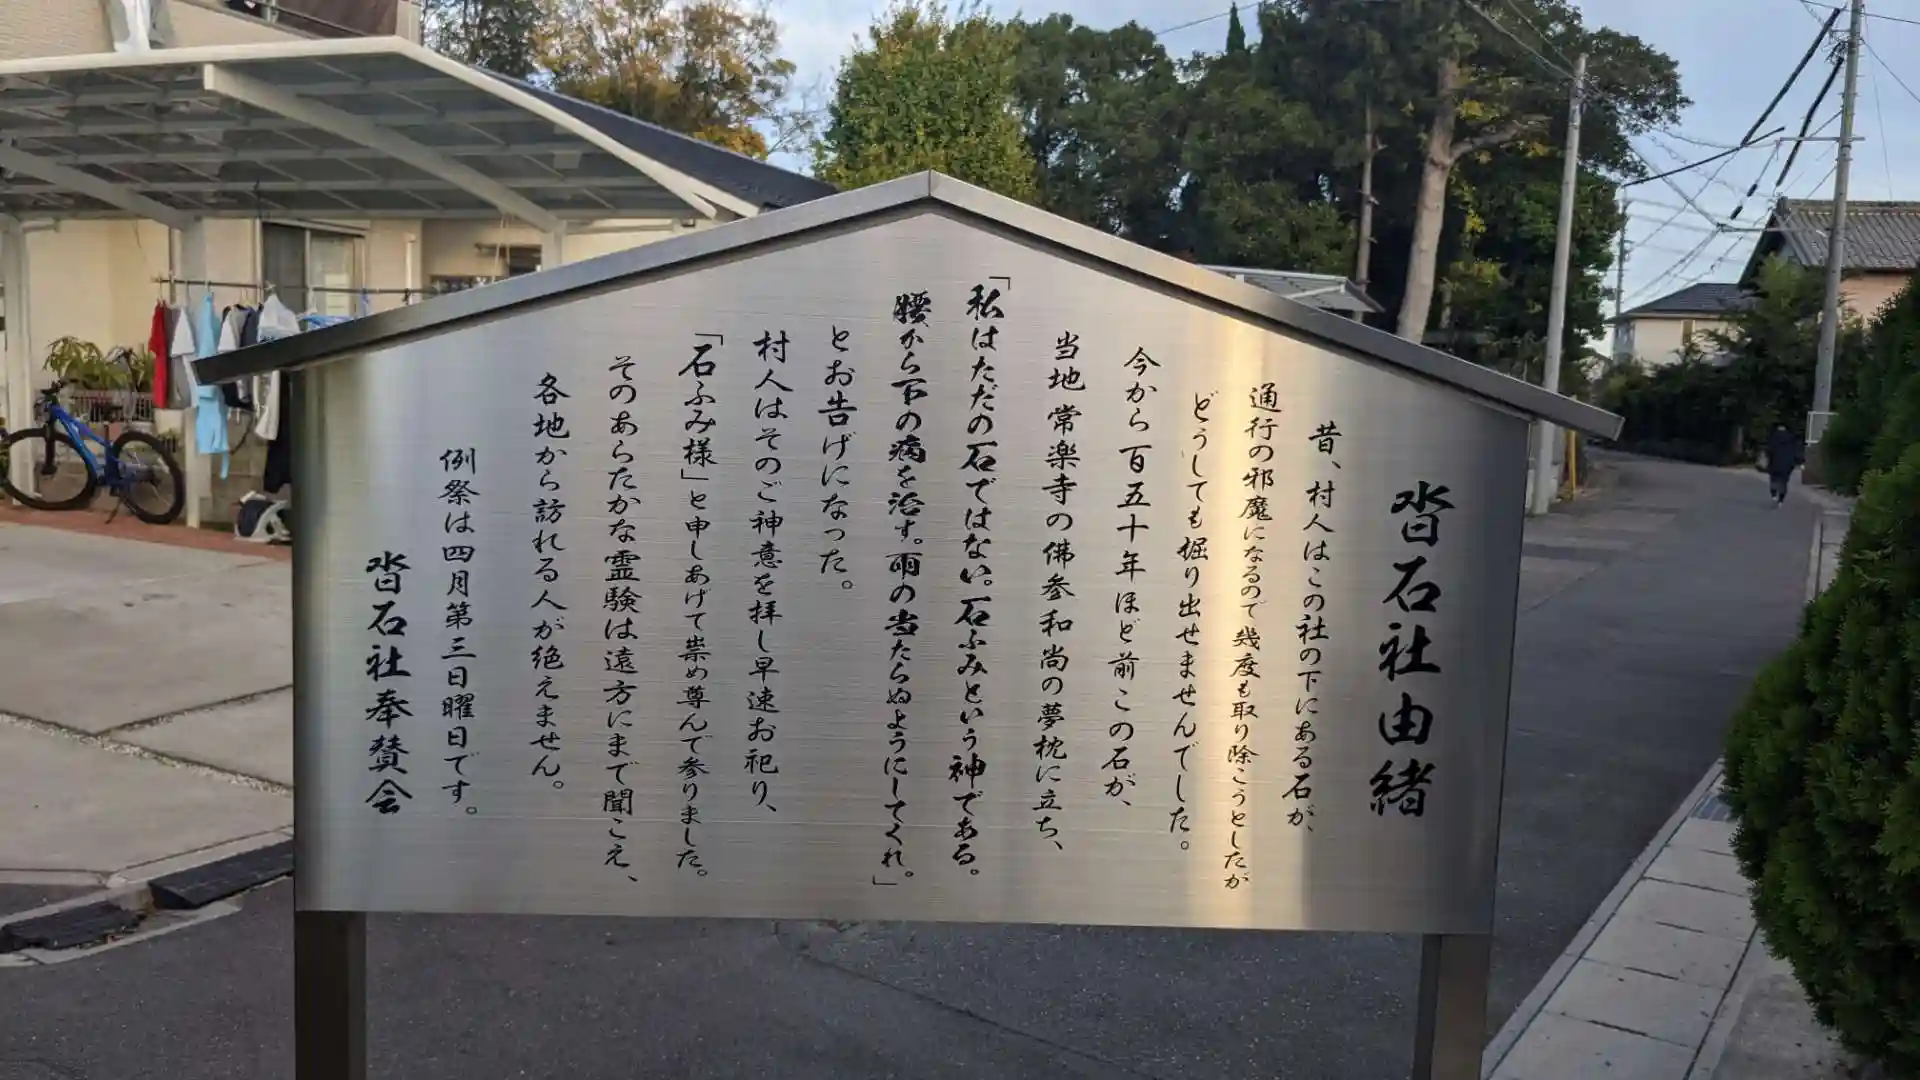 沓石社由緒
昔、村人はこの社の下にある石が、
通行の邪魔になるので幾度も取り除こうとしたが
どうしても堀り出せませんでした。
今から百五十年ほど前この石が、
当地常楽寺の佛参和尚の夢枕に立ち、
「私はただの石ではない。石ふみという神である。
腰から下の病を治す。雨の当たらぬようにしてくれ。」
とお告げになった。
村人はそのご神意を拝し早速お祀り、
「石ふみ様」と申しあげて崇め尊んで参りました。
そのあらたかな霊験は遠方にまで聞こえ、
各地から訪れる人が絶えません。
例祭は四月第三日曜日です。
沓石社奉賛会